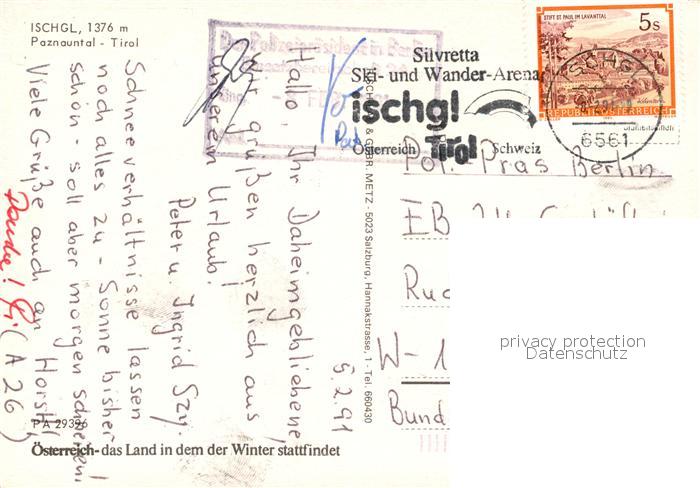 ISCHGL, 1376 m
Paznauntal - Tirol
Silvretta
Ski- und Wander-Arena
ischgl
Tirol
Österreich
Schweiz
STIFT ST. PAUL IM LAVANTTAL
5s
REPUBLIK ÖSTERREICH
ISCHGL
6561
5.2.91
Hallo, Ihr Daheimgebliebene,
wir grüßen herzlich aus
unserem Urlaub.
Peter u. Ingrid Szy.
Schneeverhältnisse lassen
noch alles zu - Sonne bisher
schön - soll aber morgen schneien!
Viele Grüße auch an Horst!
(A 26)
Danke!
& GEBR. METZ - 5023 Salzburg, Hannakstrasse, 1 - Tel. 660430
Pol.-Präs Berlin
EB
W-1
Bund
privacy protection
Datenschutz
PA 29396
Österreich - das Land in dem der Winter stattfindet